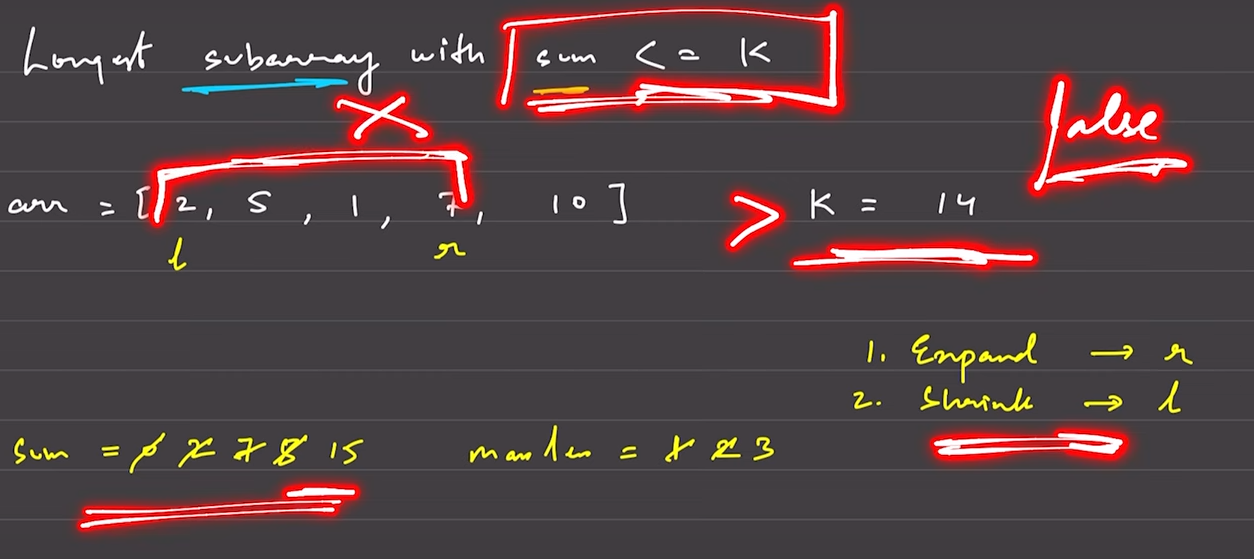 Longest subarray with sum <= K
false
arr = [2, 5, 1, 7, 10] > K = 14
l r
1. Expand → r
2. Shrink → l
sum = 0 2 7 8 15 maxlen = 1 2 3